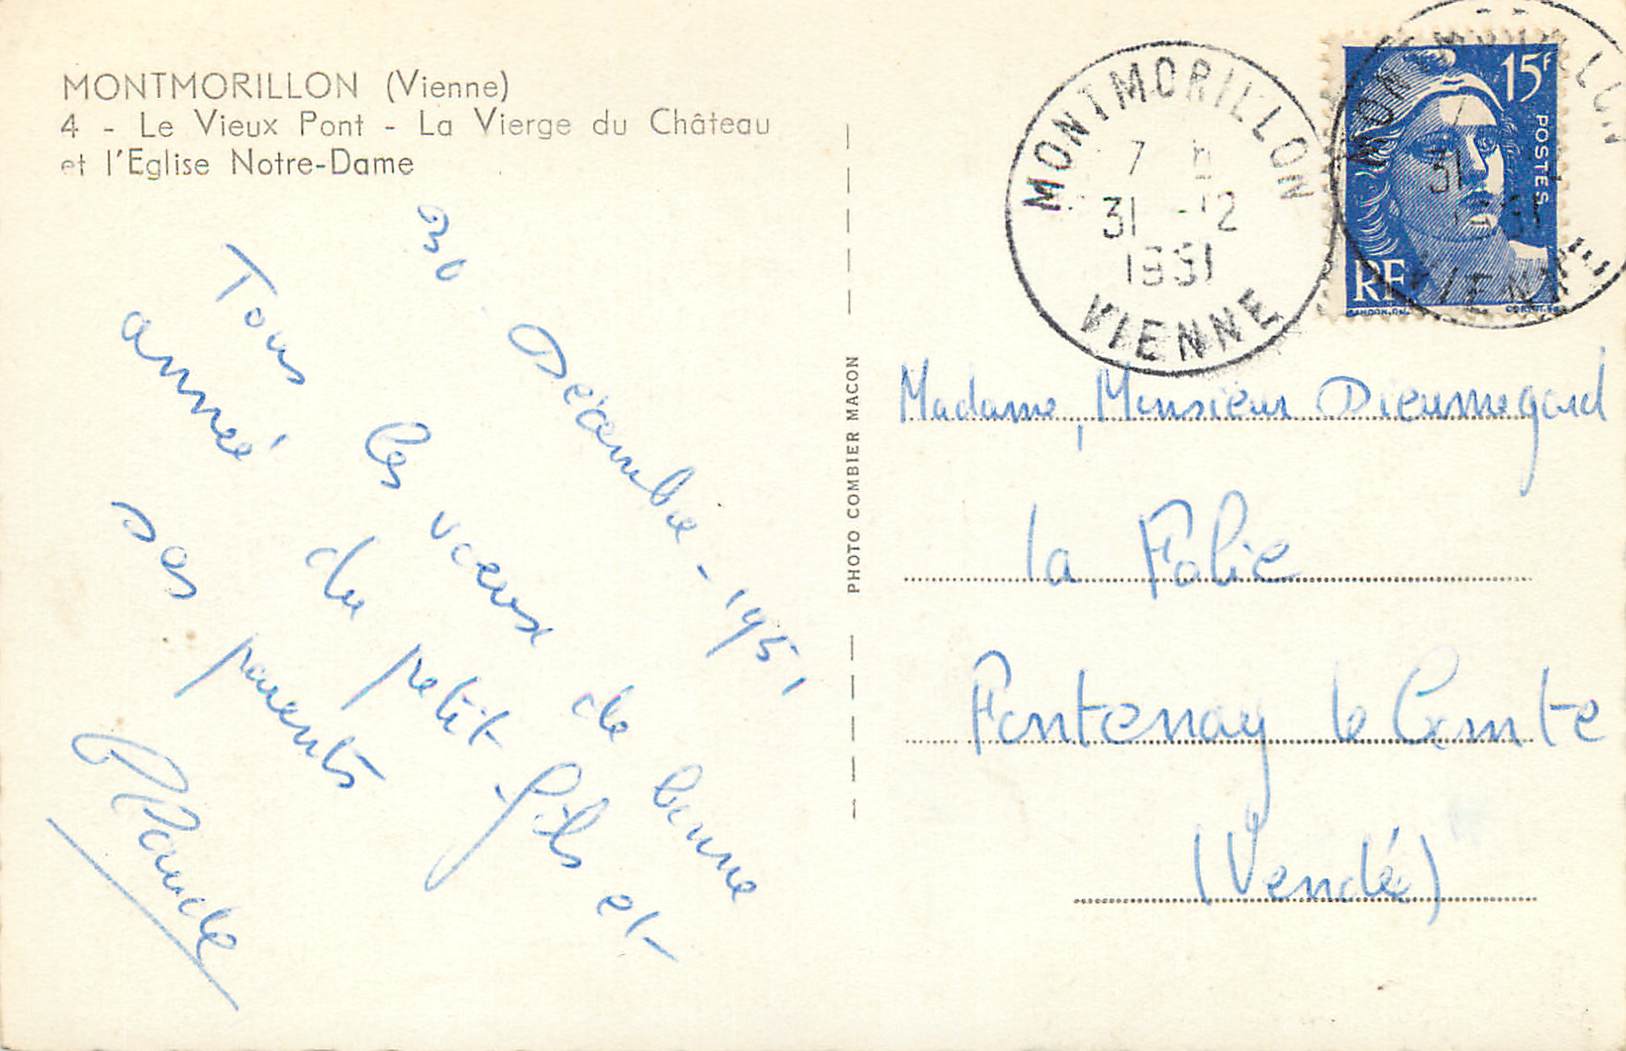 MONTMORILLON (Vienne)
4 - Le Vieux Pont - La Vierge du Château
et l'Eglise Notre-Dame
30 Décembre - 1951
Tous les vœux de bonne
année du petit-fils et
ses parents
Claude
PHOTO COMBIER MACON
MONTMORILLON
7 H
31 -12
1951
VIENNE
MONTMORILLON
31
VIENNE
15F
POSTES
RF
GANDON.DEL.
Madame, Monsieur Dieumegard
la Folie
Fontenay le Comte
(Vendé)